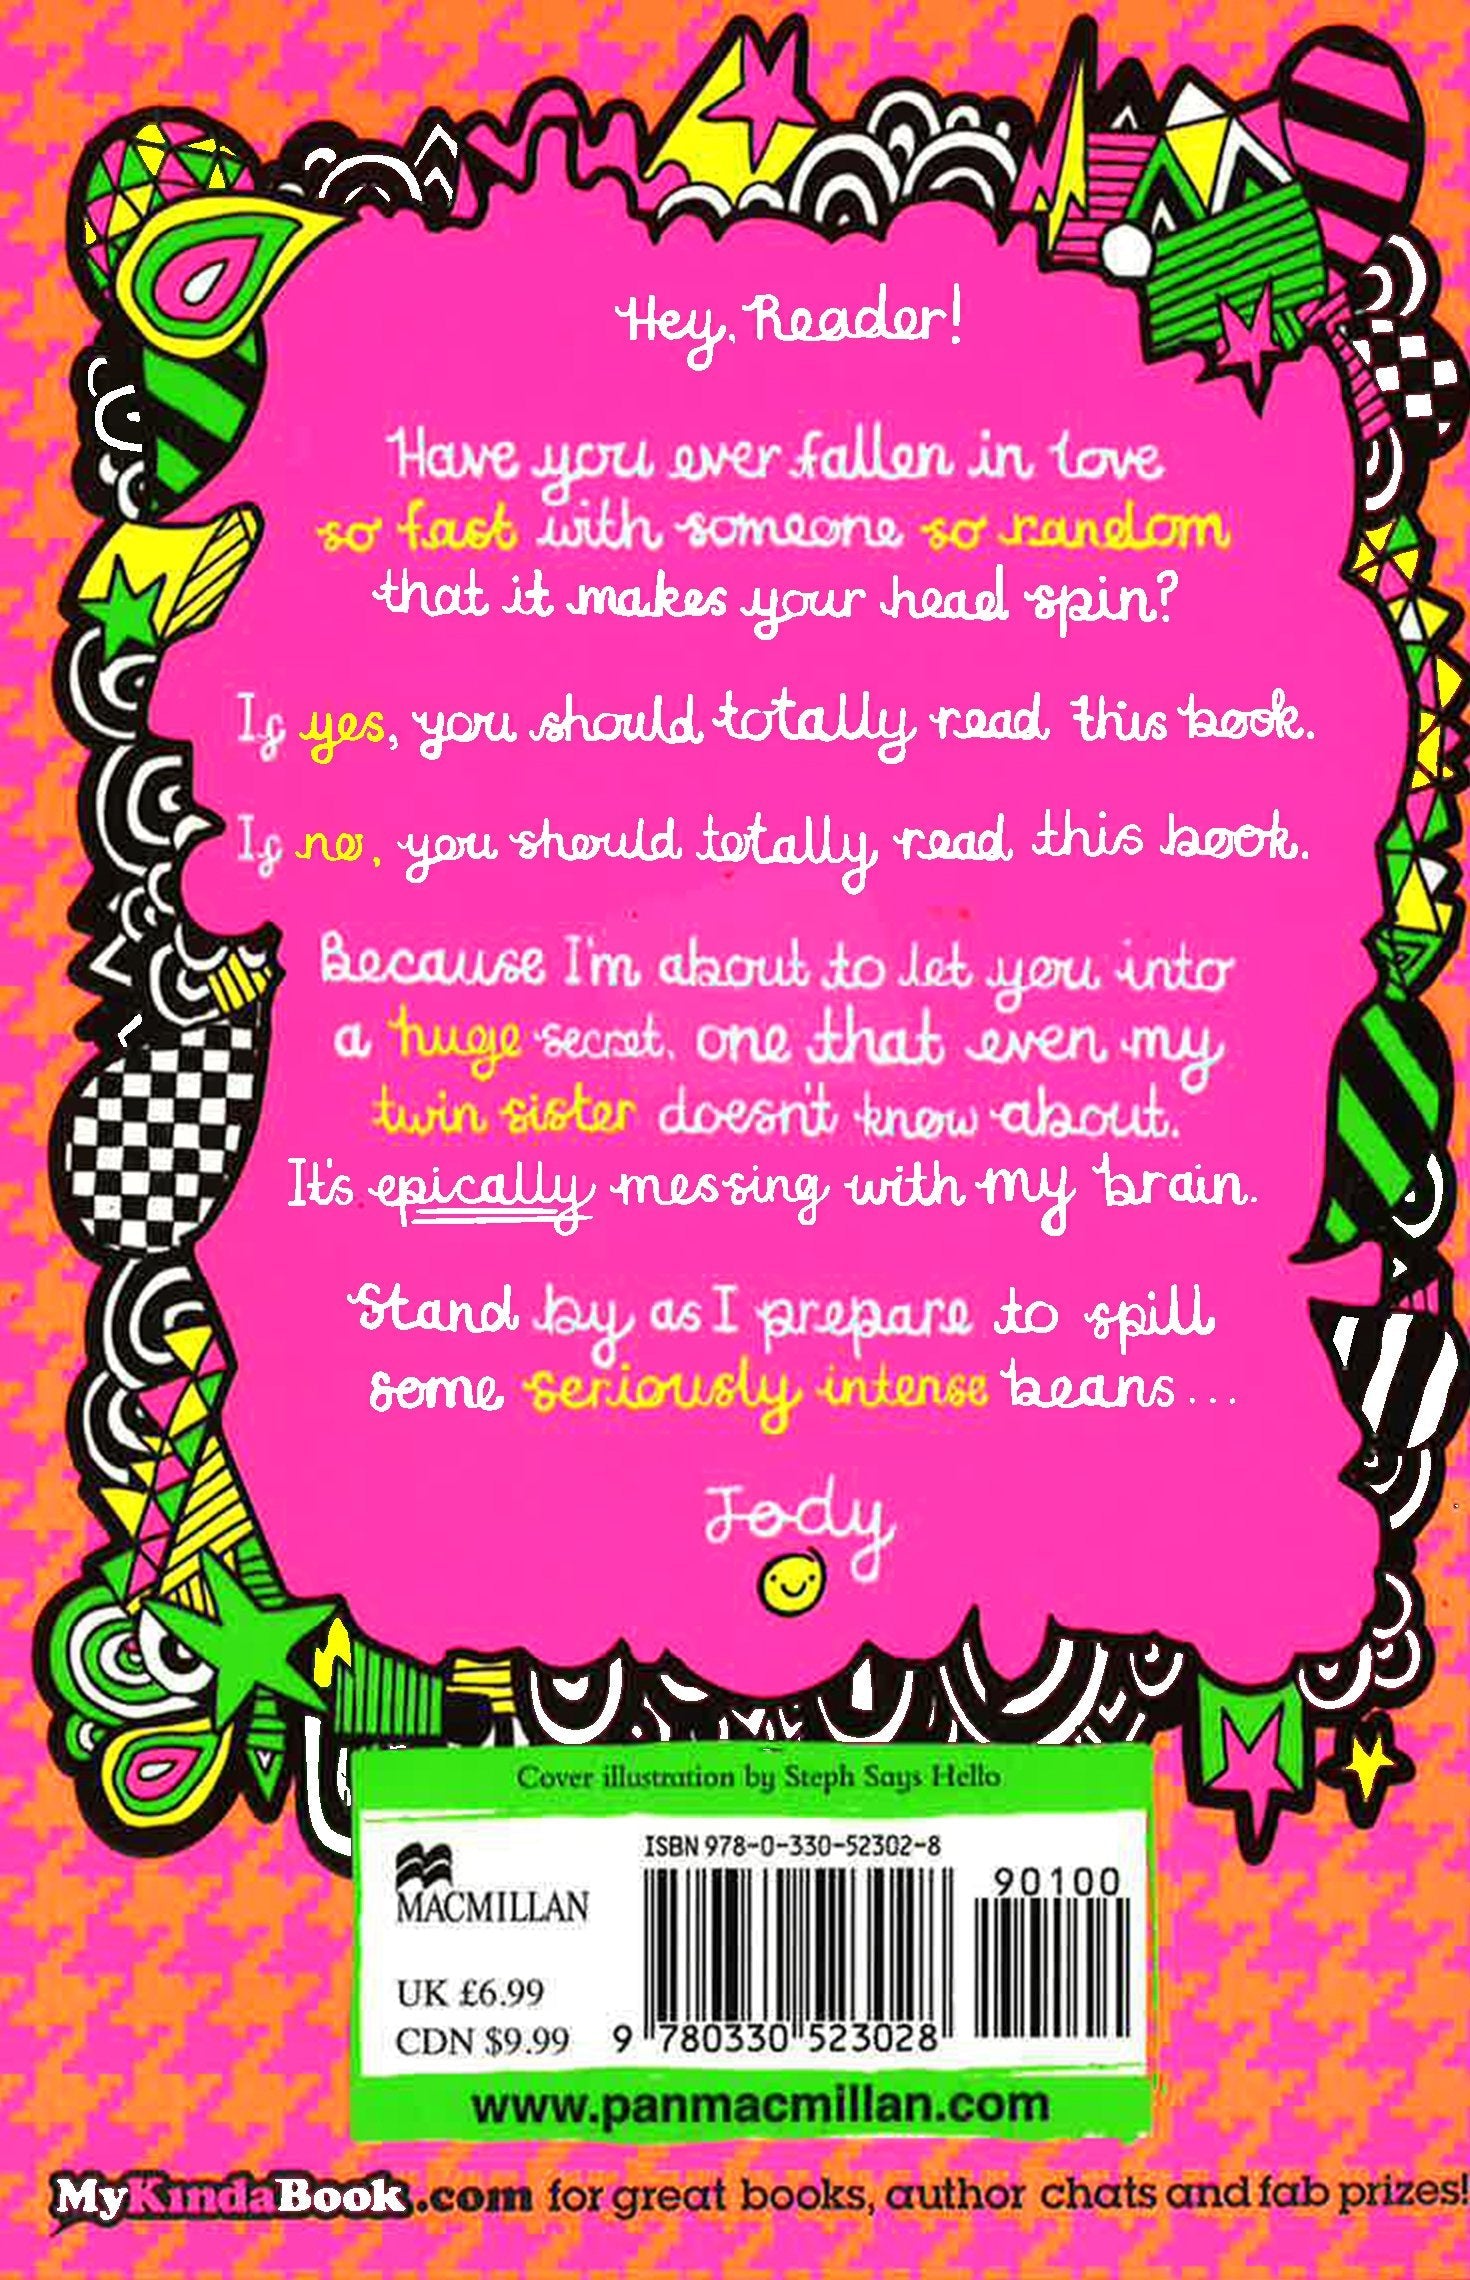 Hey, Reader!
Have you ever fallen in love
so fast with someone so random
that it makes your head spin?
If yes, you should totally read this book.
If no, you should totally read this book.
Because I'm about to let you into
a huge secret, one that even my
twin sister doesn't know about.
It's epically messing with my brain.
Stand by as I prepare to spill
some seriously intense beans...
Jody
Cover illustration by Steph Says Hello
ISBN 978-0-330-52302-8
90100
MACMILLAN
UK £6.99
CDN $9.99
9 780330 523028
www.panmacmillan.com
MyKindaBook.com for great books, author chats and fab prizes!